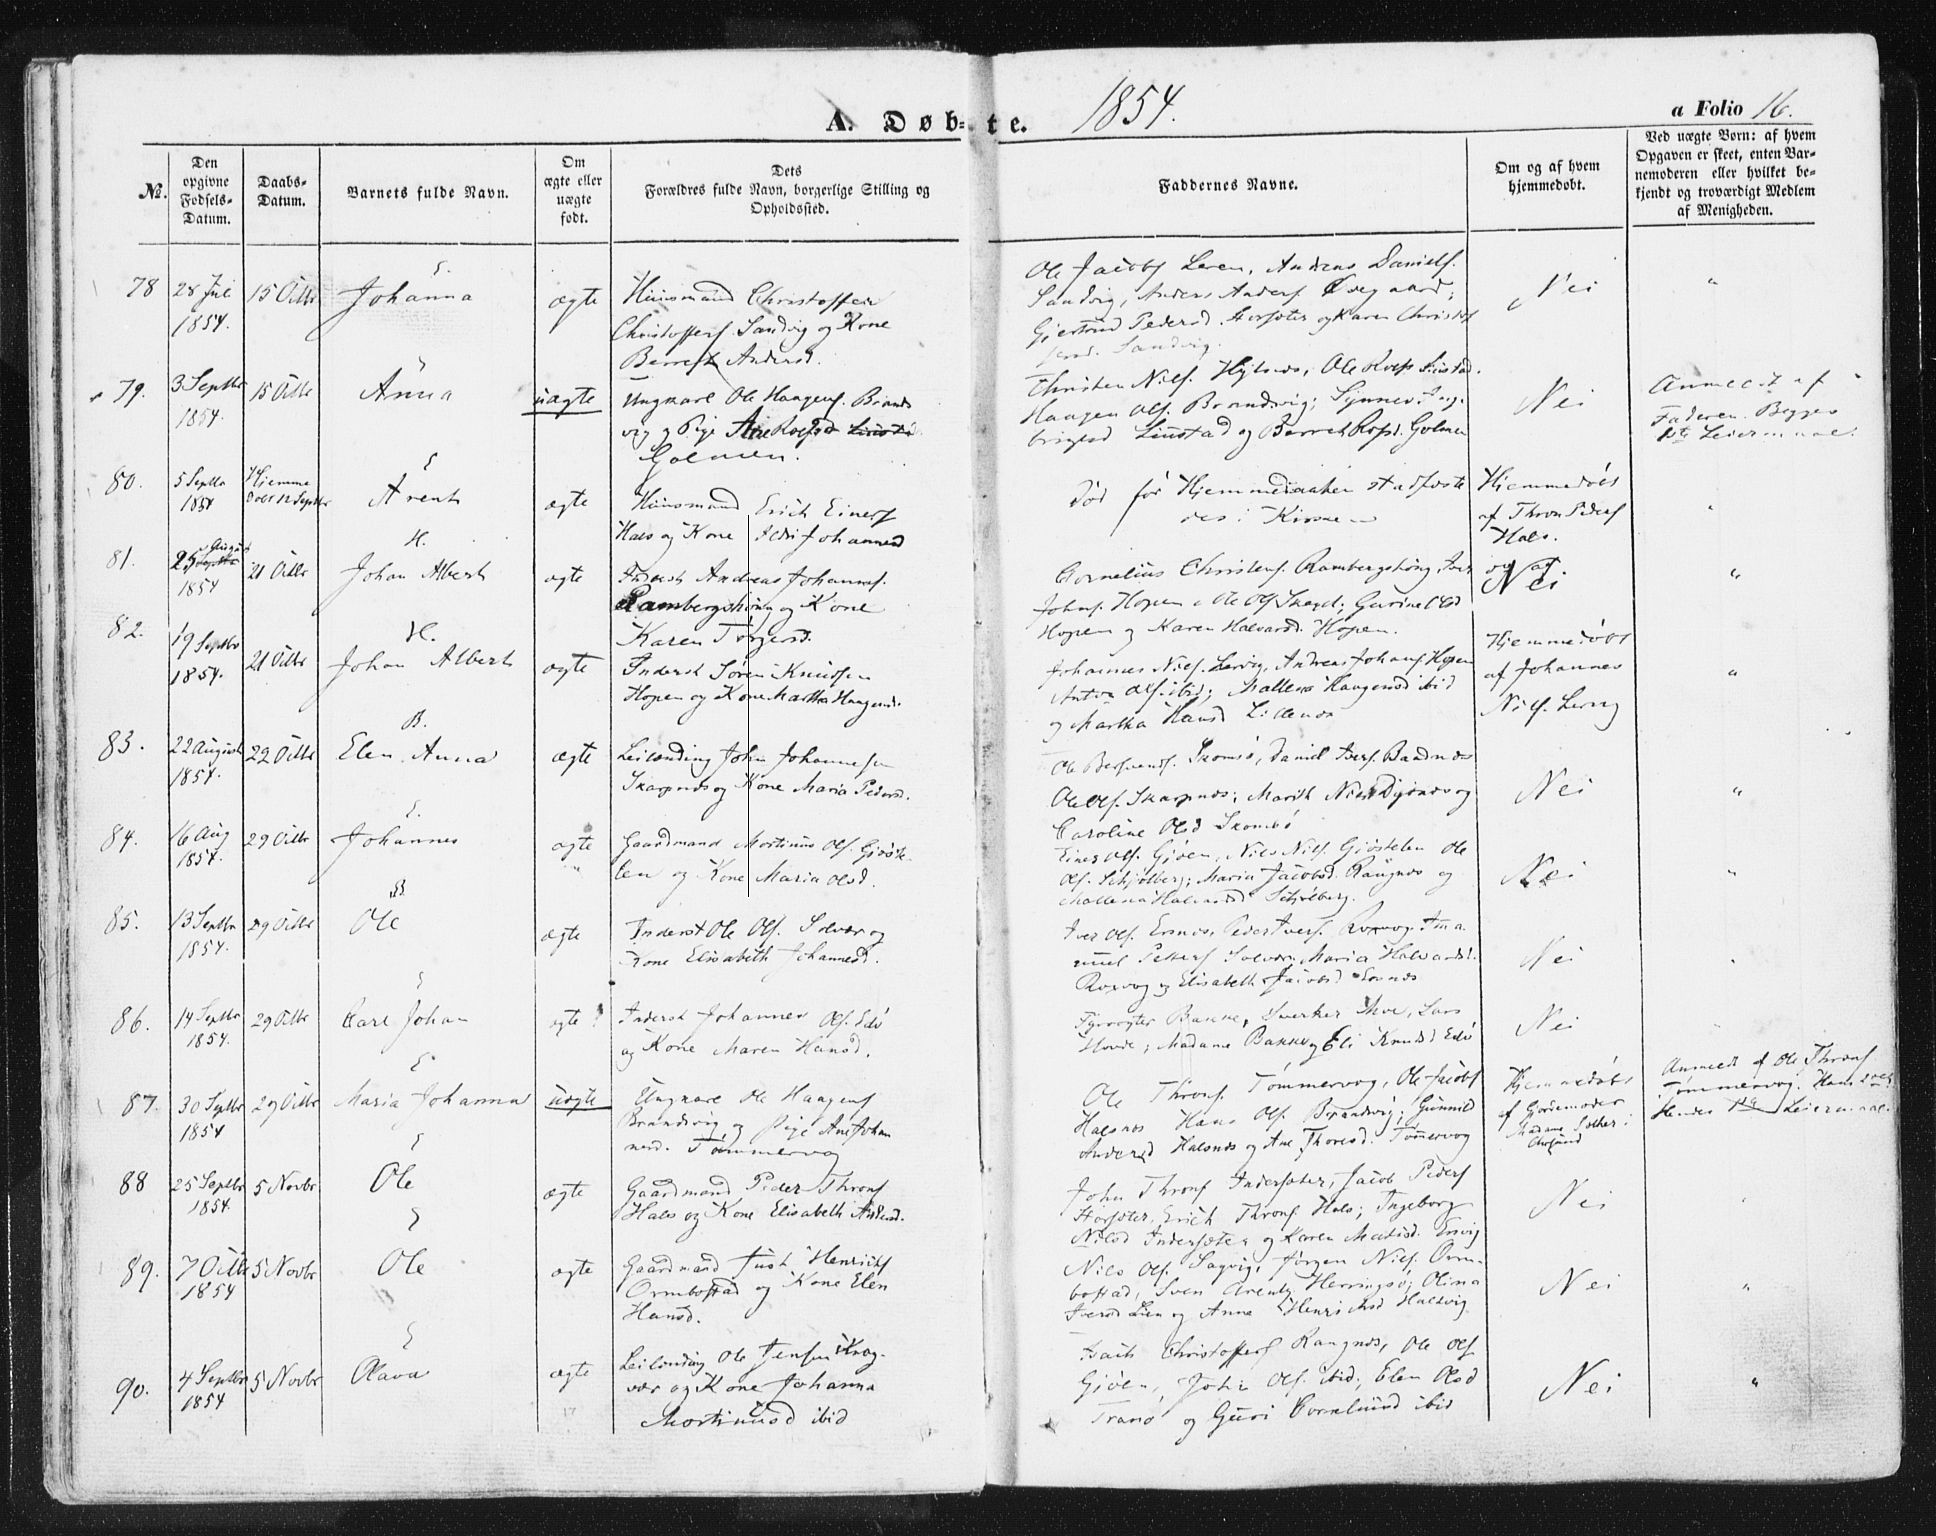 A. Døb-te. 1854.
a Folio 16.
No.
Den opgivne Fødsels-Datum.
Daabs-Datum.
Barnets fulde Navn.
Om ægte eller uægte født.
Dets Forældres fulde Navn, borgerlige Stilling og Opholdssted.
Faddernes Navne.
Om og af hvem hjemmedøbt.
Ved uægte Børn: af hvem Opgaven er skeet, enten Barnemoderen eller hvilket bekjendt og troværdigt Medlem af Menigheden.
78 28 Jul 1854. 15 Octbr Johanna ægte
Huusmand Christoffer
Christoffers. Sandvig og Kone
Berreth Andersd.
Ole Jacobs. Leren, Andreas Daniels.
Sandvig, Anders Anders.
Gjertrud Pedersd. Horsæter og Karen Christof
fersd. Sandvig.
Nei "
79. 3 Septbr 1854. 15 Octbr Anna uægte
Ungkarl Ole Haagens. Brand
vig og Pige Ane Rolfsd
Golmen.
Christen Niels. Ole Rolfs. Liustad.
Haagen Ols. Brandvig; Synnev Inge
brigtsd Liustad og Berret Rolfsd. Golmen
Nei
Anmeldt af
Faderen. Begges
1ste Leiermaal.
80. 5 Septbr 1854 Hjemme døbt 12 Septbr Arent ægte
Huusmand Erich Einers
Hals og Kone Ildri Johannesd
Død før Hjemmedaaben stadfæste
des i Kirken
Hjemmedøbt
af Thron Peders
Hals.
81. 25 August 1854 21 Octbr Johan Albert ægte
Inderst Andreas Johannes.
Rambergshøug og Kone
Karen Torgersd.
Cornelius Christens. Rambergshøug, Iver
Johns. Hopen, Ole Ols. Skegel; Gurine Olsd
Hopen og Karen Halvardsd. Hopen.
Nei "
82. 19 Septbr 1854. 21 Octbr Johan Albert ægte
Inderst Søren Knudsen
Hopen og Kone Martha Haagensd.
Johannes Niels. Lervig, Andreas Johans. Hopen
Anton Ols. ibid; Mallena Haagensd ibid
og Martha Hansd Lillenes
Hjemmedøbt
af Johannes
Niels. Lervig
"
83. 22 August 1854. 22 Octbr Elen Anna ægte
Leilænding John Johannesen
Skarpnes og Kone Maria Pedersd.
Ole Bersvends. Skomsø, Daniel Ivers. Baadnes
Ole Ols. Skarpnes; Marith Nielsd Dyrnes og
Caroline Olsd Skomsø
Nei "
84. 16 Aug 1854. 29 Octbr Johannes ægte
Gaardmand Mortinus Ols. Gjøste-
len og Kone Maria Olsd.
Einer Ols. Gjøen, Niels Niels. Gjøstelen Ole
Ols. Schjølberg; Maria Jacobsd. Raugnes og
Mallena Halvardsd Schjølberg.
Nei "
85. 13 Septbr 1854. 29 Octbr Ole ægte
Inderst Ole Ols. Solvær og
Kone Elisabeth Johannesd.
Iver Ols. Ersnes, Peder Ivers. Roxvog, Ema
nuel Petters Solvær, Maria Halvardsd.
Roxvog og Elisabeth Jacobsd Ersnes
Nei
86. 14 Septbr 1854. 29 Octbr Carl Johan ægte
Inderst Johannes Ols. Edø
og Kone Maren Hansd.
Fyrvogter Bakke, Lars
Hovde; Madame Bakke og Eli Knudsd Edø
Nei
87. 30 Septbr 1854 29 Octbr Maria Johanna uægte
Ungkarl Ole Haagens
Brandvig og Pige Ane Johan
nesd. Tømmervog
Ole Throns. Tømmervog, Ole Jacobs
Halsnes Hans Ols. Brandvig; Gunnild
Andersd Halsnes og Ane Thoresd. Tømmervog
Hjemmedøbt
af Gjordemoder
Madame
Anmeldt af Ole Throns.
Tømmervog. Hans 2det
Hendes 1ste Leiermaal.
88 25 Septbr 1854. 5 Novbr Ole ægte
Gaardmand Peder Throns
Hals og Kone Elisabeth Andersd.
John Throns Indersæter, Jacob Peders
Horsæter, Erich Throns Hals; Ingeborg
Nielsd Indersæter og Karen Mathisd. Ervig
Nei
89. 7 Octbr 1854 5 Novbr Ole ægte
Gaardmand Just Henrichs
Ormbostad og Kone Elen
Hansd.
Niels Ols. Sagvig, Jørgen Niels. Orm-
bostad, Sven Arents Herringsø; Olina
Iversd Lien og Anne Henrichsd Halsvig.
Nei "
90. 4 Septbr 1854 5 Novbr Olava ægte
Leilænding Ole Jensen Krog-
vær og Kone Johanna
Mortinusd ibid
Isach Christoffers Raugnes, Ole Ols
Gjøen, John Ols. ibid; Elen Olsd
Tranø og Guri Corneliusd ibid
Nei "